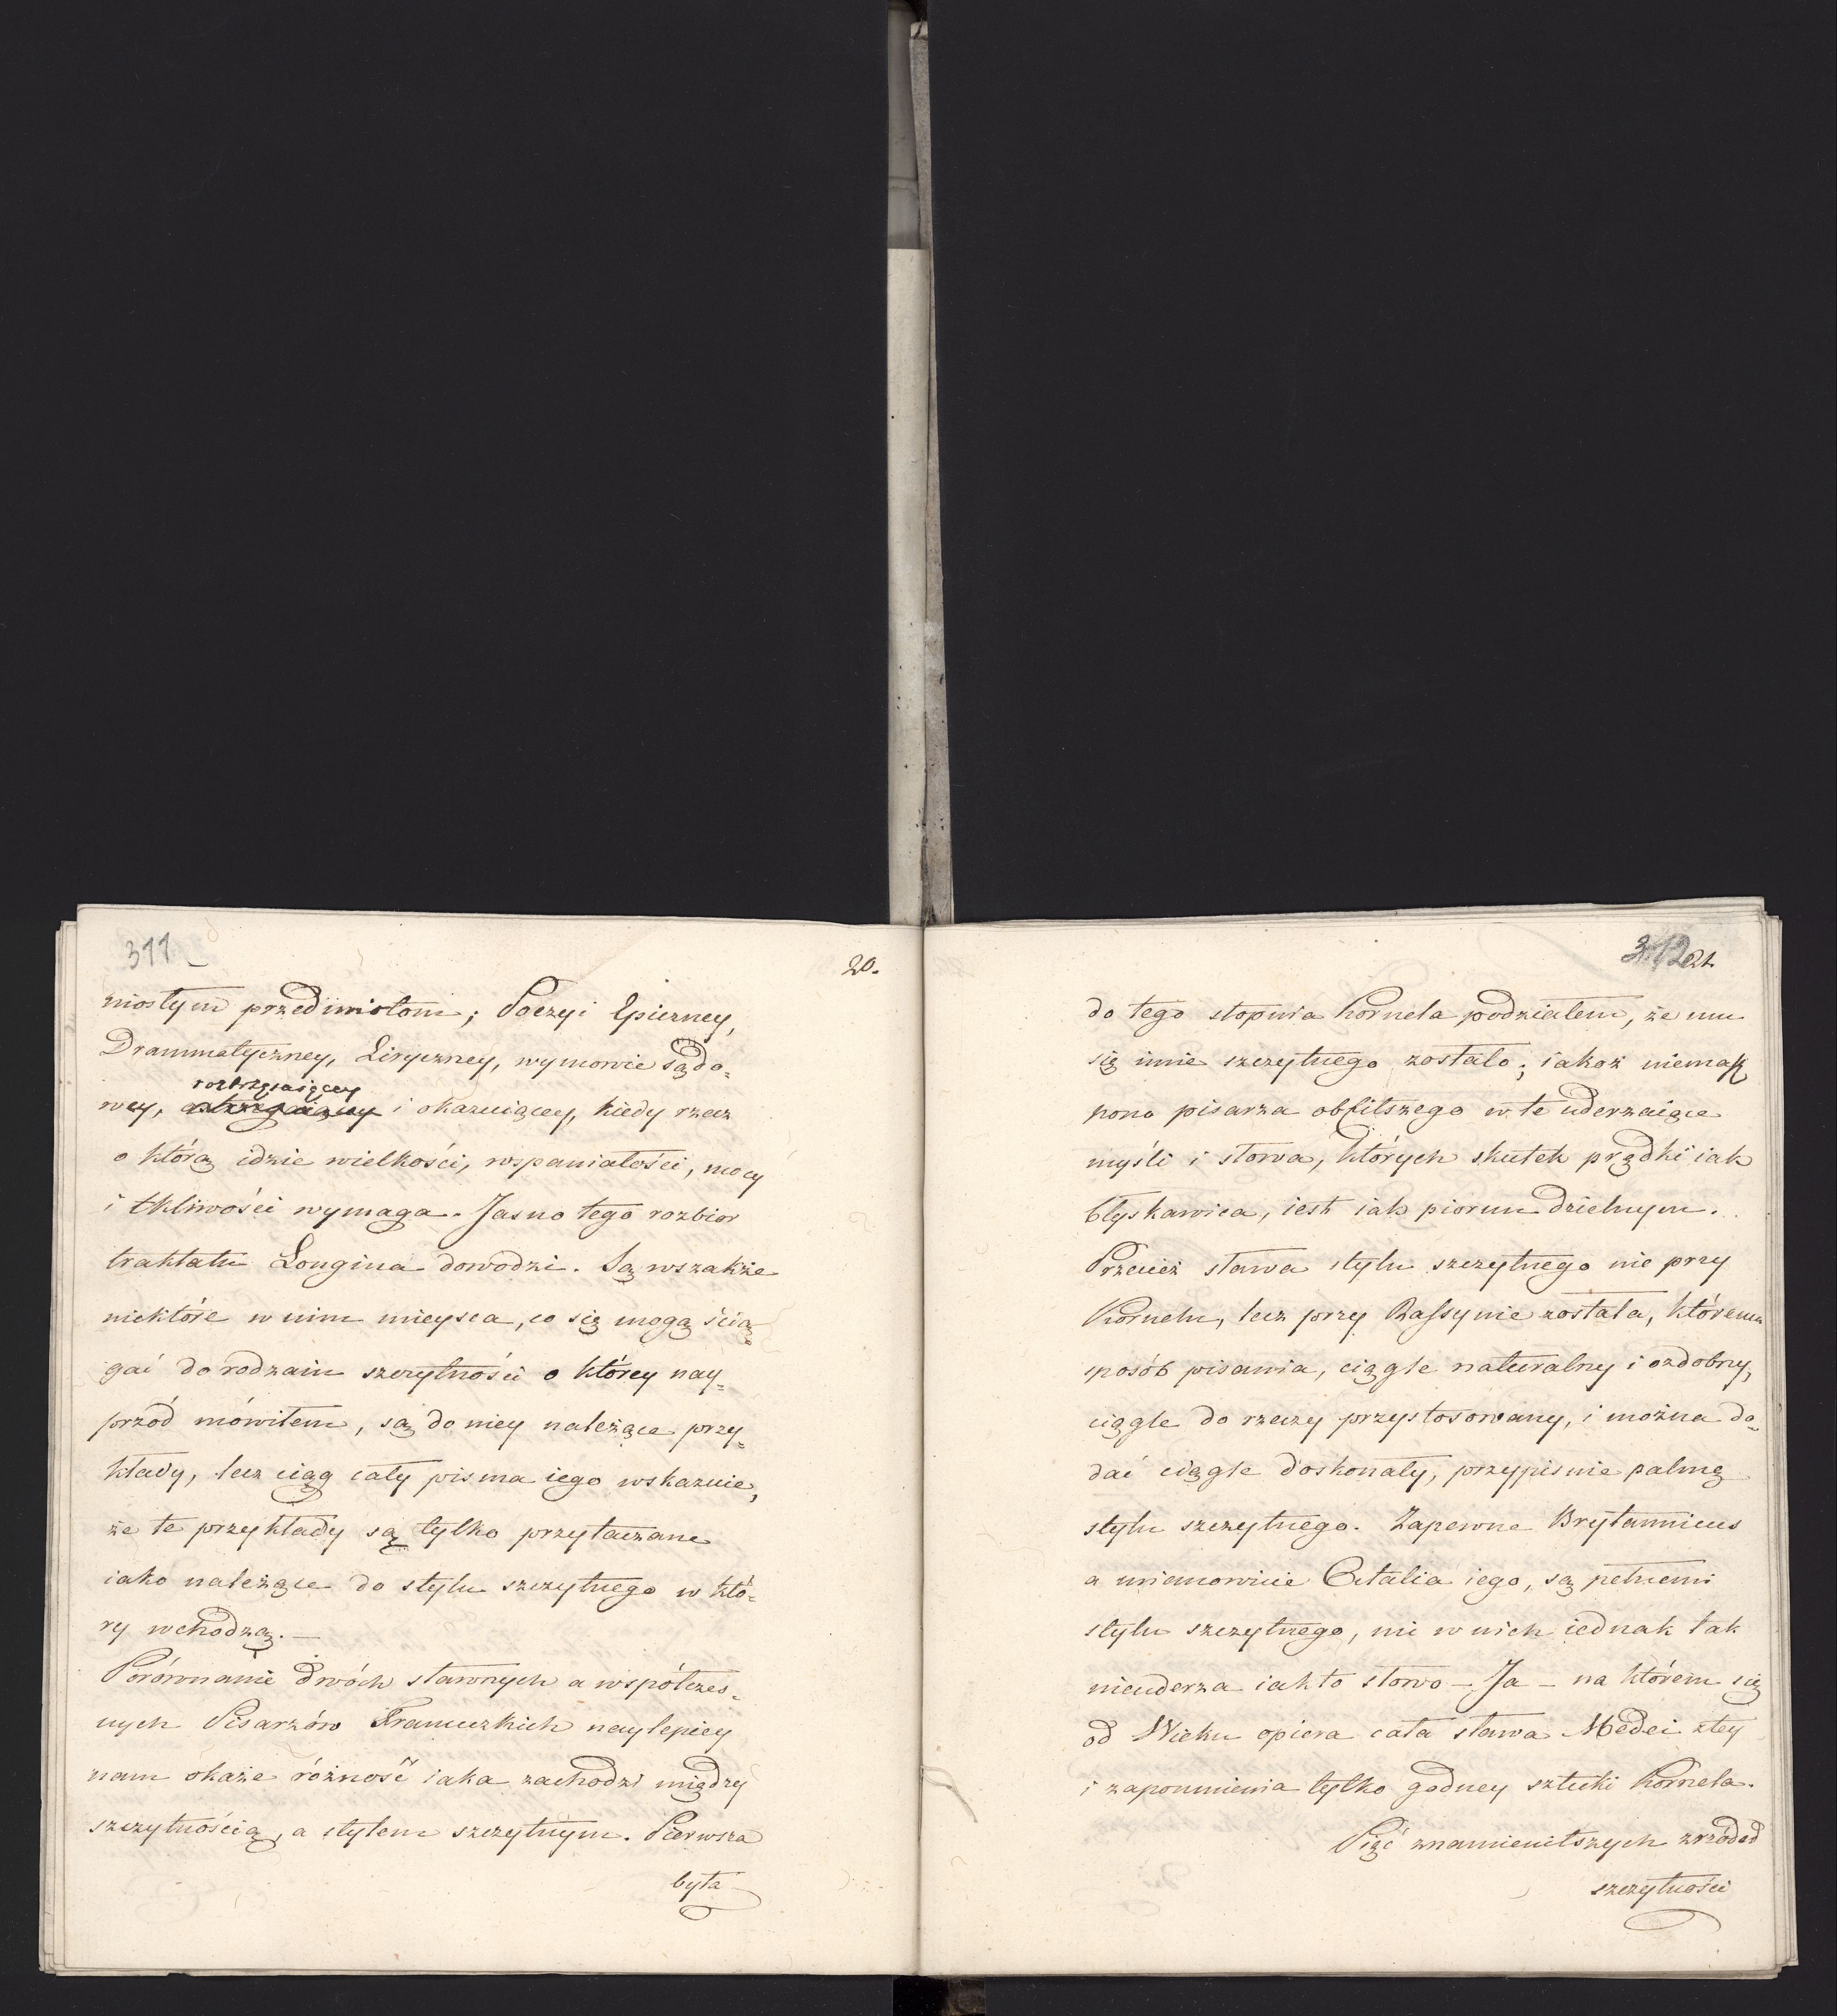 311
20.
niosłym przedmiotom; Poezyi Epiczney,
Drammatyczney, Liryczney, wymowie sądo=
rozbrzaiącey
wey, i okazuiącey, kiedy rzecz
o którą idzie wielkości, wspaniałości, mocy
i tkliwości wymaga. Jasno tego rozbior
traktatu Longina dowodzi. Są wszakże
niektóre w nim mieysca, co się mogą ścią=
gać do rodzaiu szczytności o którey nay=
przód mówiłem, są do niey należące przy=
kłady, lecz ciąg cały pisma iego wskazuie,
że te przykłady są tylko przytaczane
iako należące do stylu szczytnego w któ=
ry wchodzą. —
Porównanie dwóch sławnych a współczes=
nych Pisarzów Francuzkich naylepiey
nam okaże różność iaka zachodzi między
szczytnością, a stylem szczytnym. Pierwsza
była
312
21.
do tego stopnia Kornela podziałem, że mu
się imie szczytnego zostało; iakoż niemasz
pono pisarza obfitszego w te uderzaiące
myśli i słowa, których skutek prędki iak
błyskawica, iest iak piorun dzielnym.
Przecież sława stylu szczytnego nie przy
Kornelu, lecz przy Rassynie została, któremu
sposób pisania, ciągle naturalny i ozdobny,
ciągle do rzeczy przystosowany, i można do=
dać ciągle doskonały, przypisuie palmę
stylu szczytnego. Zapewne Brytannicus
a mianowicie Atalia iego, są pełnemi
stylu szczytnego, nic w nich iednak tak
nieuderza iak to słowo — Ja — na którem się
od Wieku opiera cała sława Medei złey
i zapomnienia tylko godney sztuki Kornela.
Pięć znamienitszych zrzódeł
szczytności